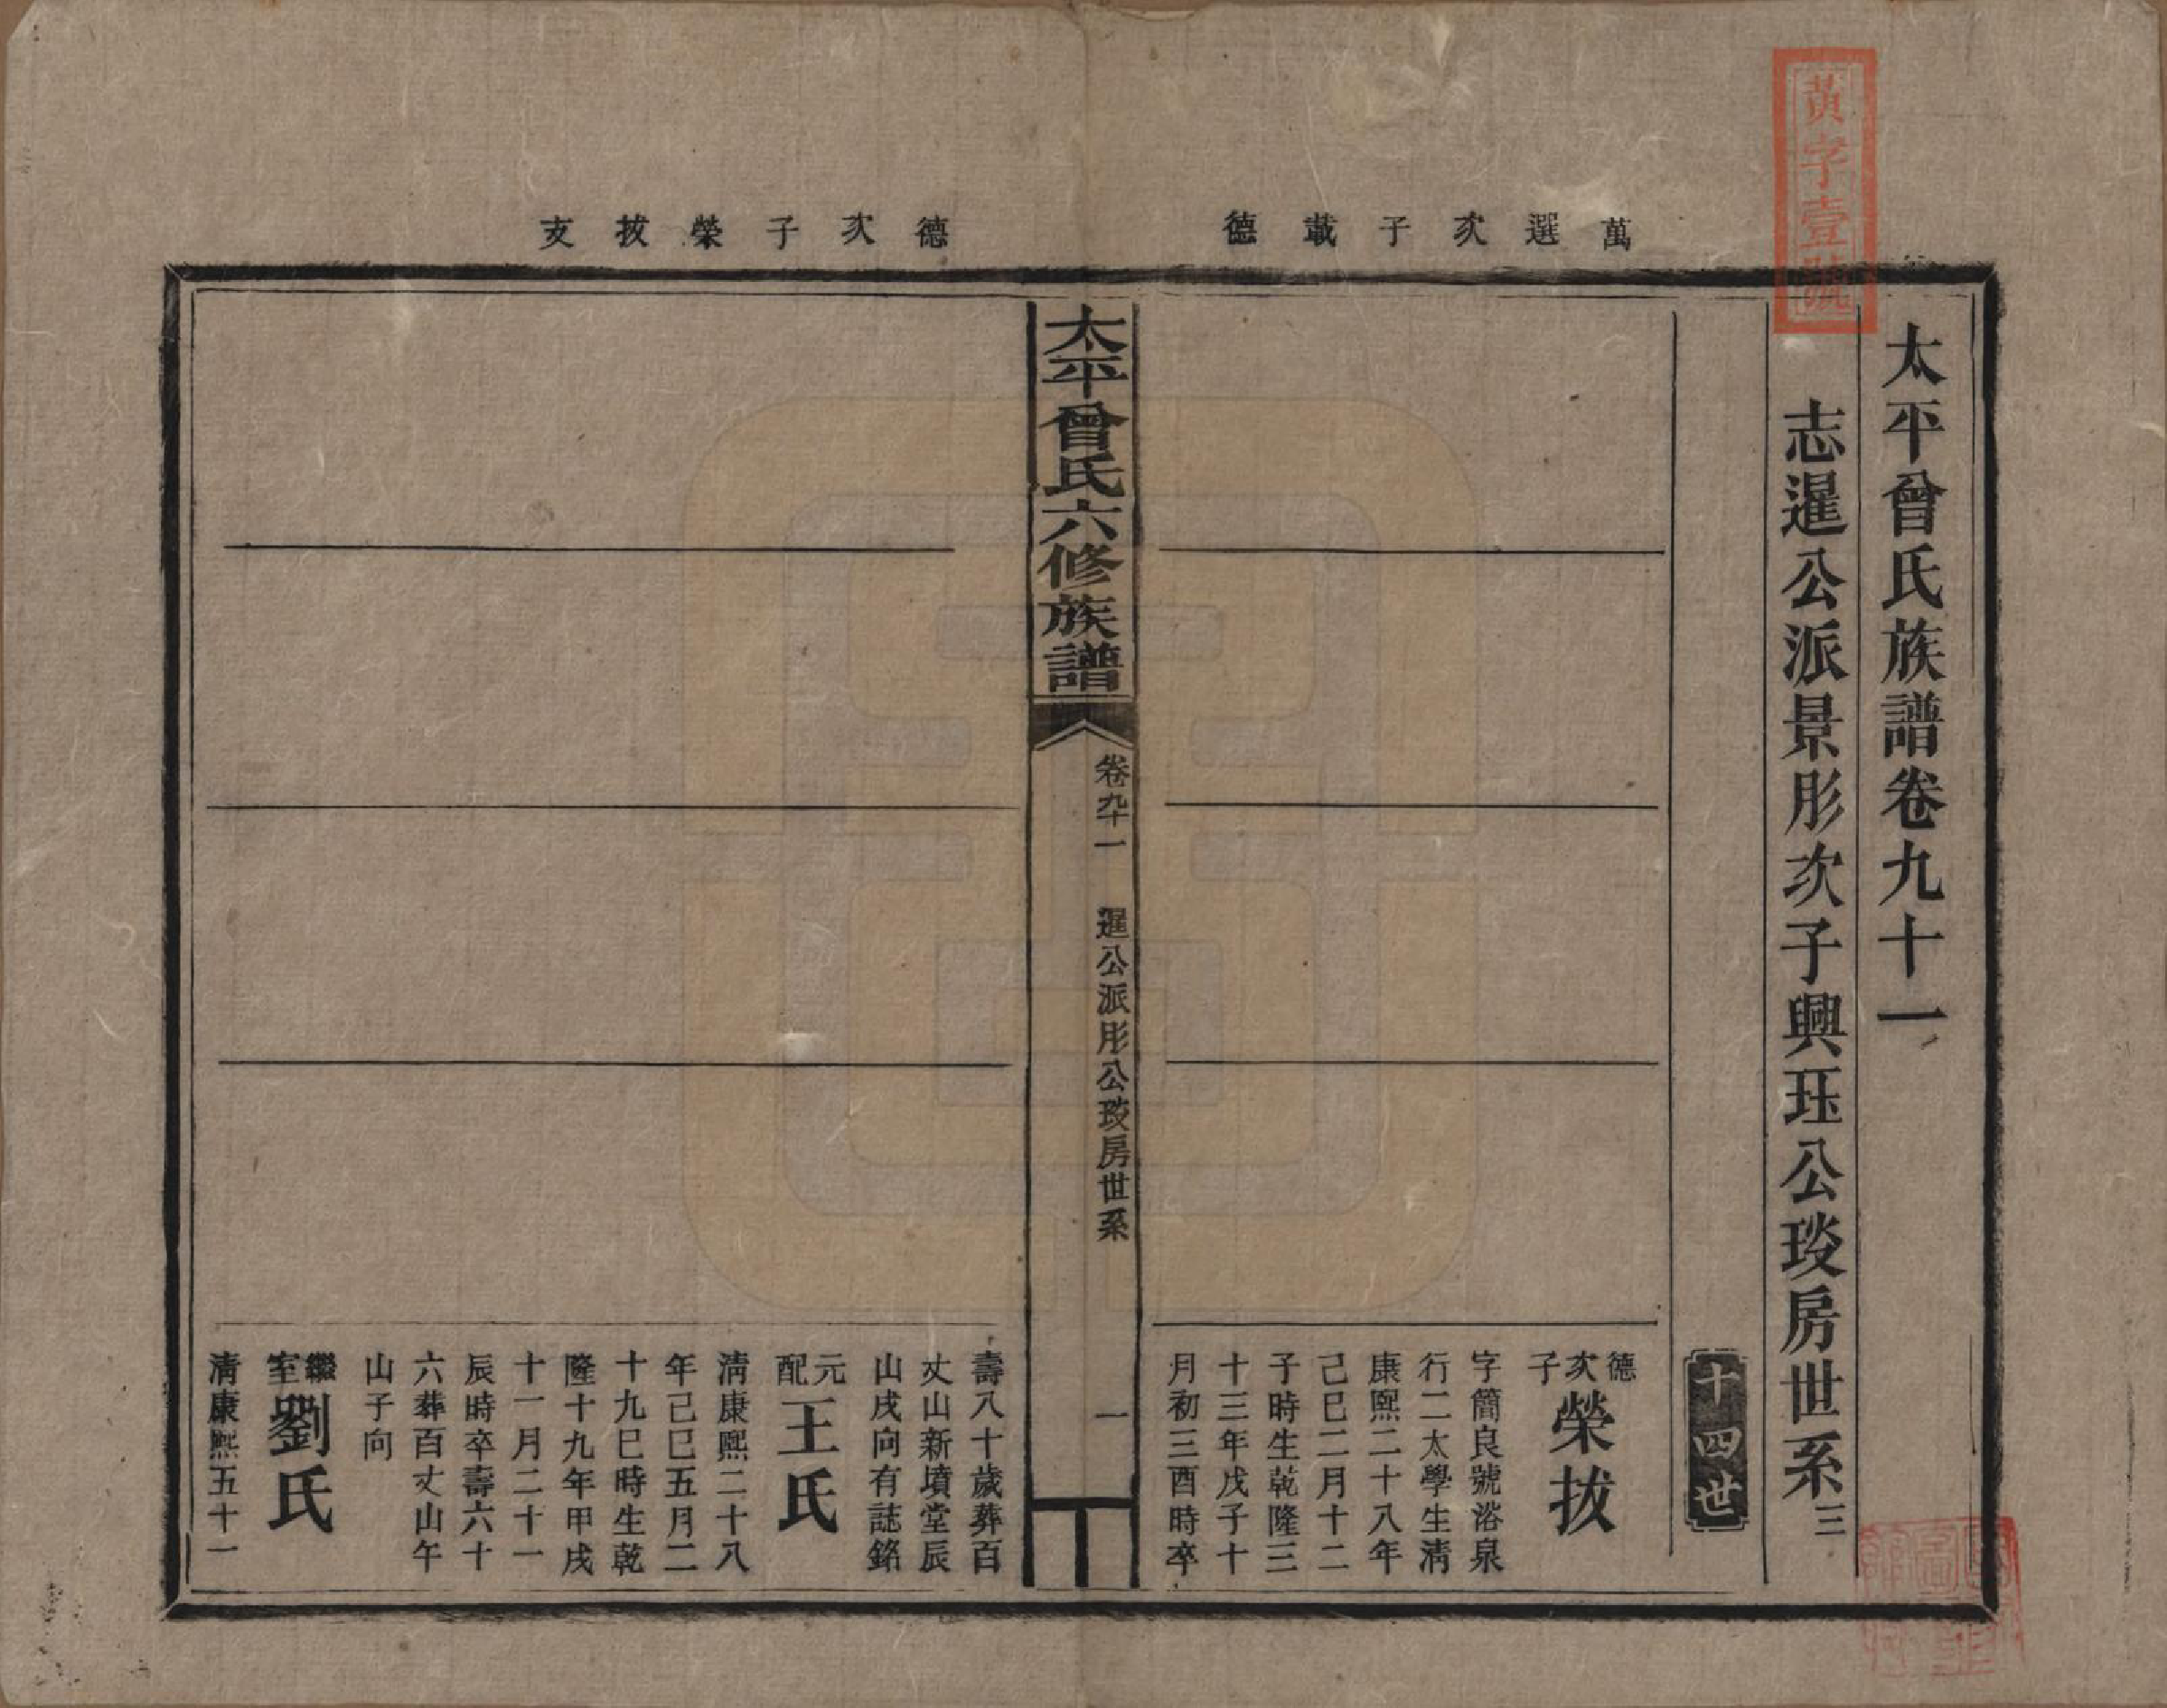 黃字壹號
太平曾氏族譜卷九十一
志暹公派景彤次子興珏公琰房世系三
十四世
萬選次子載德
德次子榮拔
字簡良號浴泉
行二太學生清
康熙二十八年
己巳二月十二
子時生乾隆三
十三年戊子十
月初三酉時卒
太平曾氏六修族譜
卷九十一
暹公派彤公琰房世系
一
德次子榮拔支
壽八十歲葬百
丈山新墳堂辰
山戌向有誌銘
元配王氏
清康熙二十八
年己巳五月二
十九巳時生乾
隆十九年甲戌
十一月二十一
辰時卒壽六十
六葬百丈山午
山子向
繼室劉氏
清康熙五十一